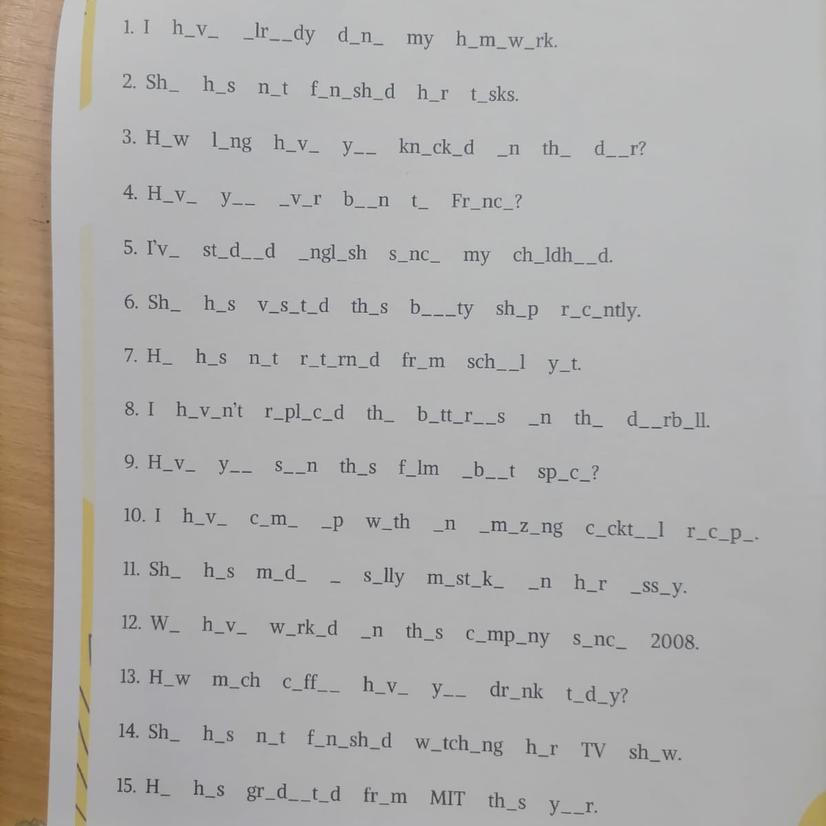 1. I h_v_ _lr__dy d_n_ my h_m_w_rk.
2. Sh_ h_s n_t f_n_sh_d h_r t_sks.
3. H_w l_ng h_v_ y__ kn_ck_d _n th_ d__r?
4. H_v_ y__ _v_r b__n t_ Fr_nc_?
5. I'v_ st_d__d _ngl_sh s_nc_ my ch_ldh__d.
6. Sh_ h_s v_s_t_d th_s b___ty sh_p r_c_ntly.
7. H_ h_s n_t r_t_rn_d fr_m sch__l y_t.
8. I h_v_n't r_pl_c_d th_ b_tt_r__s _n th_ d__rb_ll.
9. H_v_ y__ s__n th_s f_lm _b__t sp_c_?
10. I h_v_ c_m_ _p w_th _n _m_z_ng c_ckt__l r_c_p_.
11. Sh_ h_s m_d_ _ s_lly m_st_k_ _n h_r _ss_y.
12. W_ h_v_ w_rk_d _n th_s c_mp_ny s_nc_ 2008.
13. H_w m_ch c_ff__ h_v_ y__ dr_nk t_d_y?
14. Sh_ h_s n_t f_n_sh_d w_tch_ng h_r TV sh_w.
15. H_ h_s gr_d__t_d fr_m MIT th_s y__r.